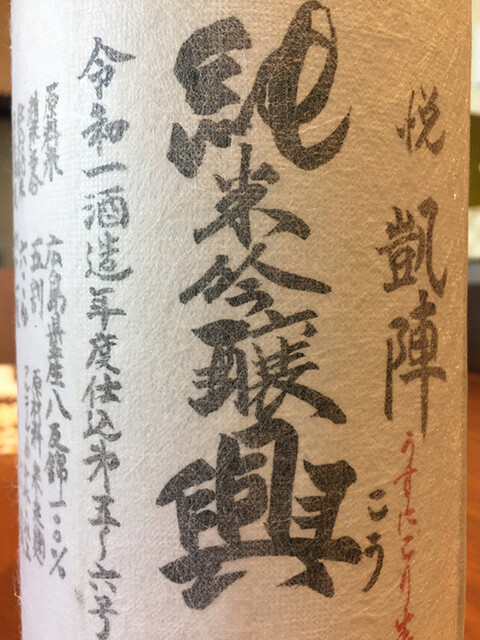 悦 凱陣
うすにごり生
純米吟醸 興
こう
令和一酒造年度仕込第五〜六号
原料米 広島県産八反錦一〇〇%
五割 原材料 米 米麹